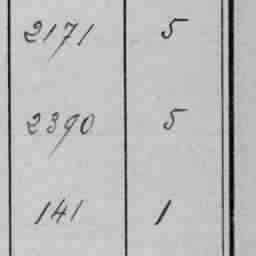 2171 5
2390 5
141 1